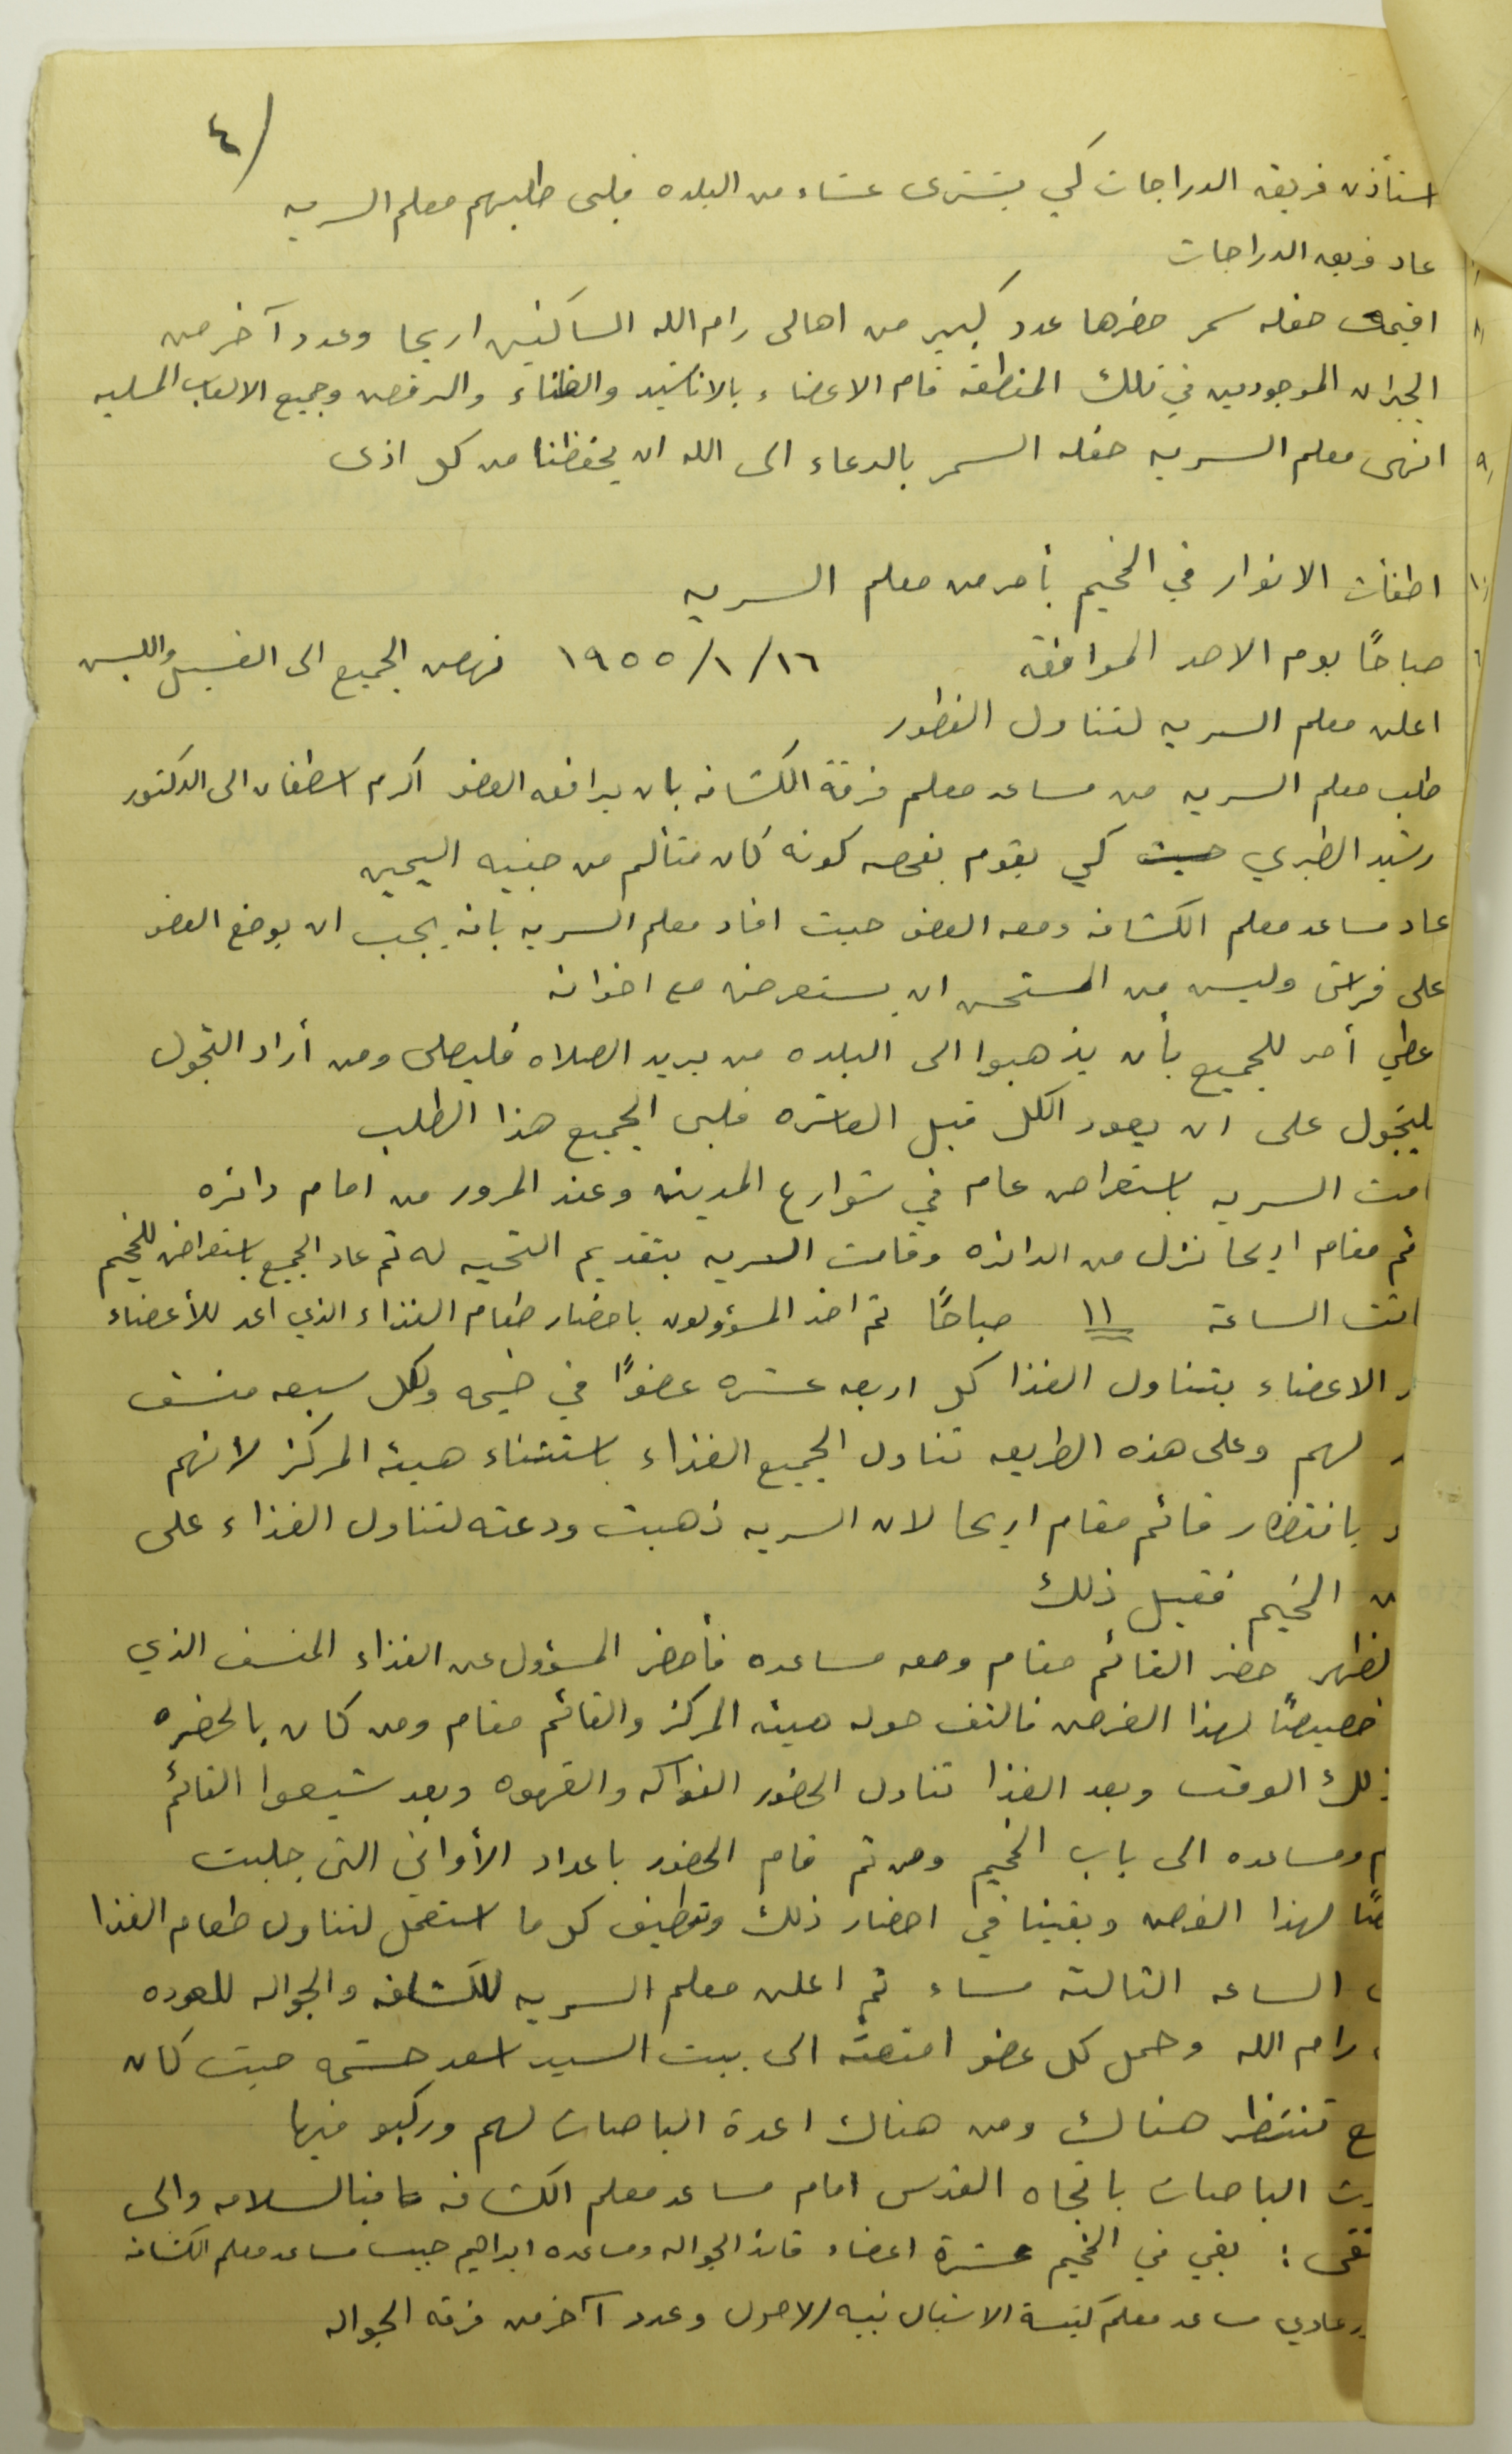 ٤/
استأذن فريق الدراجات كي يشترى عشاء من البلده فلبى طلبهم معلم السريه
عاد فريق الدراجات
اقيمت حفله سمر حضرها عدد كبير من اهالى رام الله الساكنين اريحا وعدد آخر من
الجيران الموجودين في تلك المنطقة قام الاعضاء بالاناشيد والغناء والرقص وجميع الالعاب المسليه
انهى معلم السريه حفله السمر بالدعاء الى الله ان يحفظنا من كل اذى
اطفأت الانوار في المخيم بأمر من معلم السريه
٦ صباحًا يوم الاحد الموافق ١٩٥٥/١/١٦ نهض الجميع الى الغسيل واللبس
اعلن معلم السريه لتناول الفطور
طلب معلم السريه من مساعد معلم فرقة الكشافه بان يرافق العضو اكرم اسطفان الى الدكتور
رشيد الطبري حيث كي يقوم بفحصه كونه كان متألم من جنبيه اليمين
عاد مساعد معلم الكشافه ومعه العضو حيث افاد معلم السريه بانه يجب ان يوضع العضو
على فراش وليس من المستحسن ان يستعرض مع اخوانه
عطي أمر للجميع بأن يذهبوا الى البلده من يريد الصلاه فليصلى ومن أراد التجول
ليتجول على ان يعود الكل قبل العاشره فلبى الجميع هذا الطلب
امت السريه باستعراض عام في شوارع المدينه وعند المرور من امام دائره
ئم مقام اريحا نزل من الدائره وقامت السريه بتقديم التحيه له ثم عاد الجميع باستعراض للمخيم
انت الساعة ١١ صباحًا ثم اخذ المسؤولون باحضار طعام الغذاء الذي اعد للأعضاء
الاعضاء بتناول الغذا كل اربعه عشره عضوًا في خيمه ولكل سبعه منسف
لهم وعلى هذه الطريقه تناول الجميع الغذاء باستثناء هيئه المركز لانهم
بانتظار قائم مقام اريحا لان السريه ذهبت ودعته لتناول الغذاء على
المخيم فقبل ذلك
لظهر حضر القائم مقام ومعه مساعده فأحضر المسؤول عن الغذاء المنسف الذي
خصيصًا لهذا الغرض فالتف حوله هيئه المركز والقائم مقام ومن كان بالحضره
ذلك الوقت وبعد الغذا تناول الحضور الفواكه والقهوه وبعد شيعوا القائم
م ومساعده الى باب المخيم ومن ثم قام الحضور باعداد الأواني التى جلبت
صًا لهذا الغرض وبقينا في احضار ذلك وتنظيف كل ما استعمل لتناول طعام الغذا
الساعه الثالثة مساء ثم اعلن معلم السريه للكشافه والجواله للعوده
رام الله وحمل كل عضو امتعته الى بيت السيد اسعد حشمه حيث كان
ع تنتظر هناك ومن هناك اعدة الباصات لهم وركبو فيها
رت الباصات باتجاه القدس امام مساعد معلم الكشافه هاتفا السلامه والى
تقى : بقي في المخيم عشرة اعضاء قائد الجواله ومساعده ابراهيم حبيب مساعد معلم الكشافه
عادي مساعد معلم كنيسة الاشبال نبيه الاحول وعدد آخر من فرقه الجواله